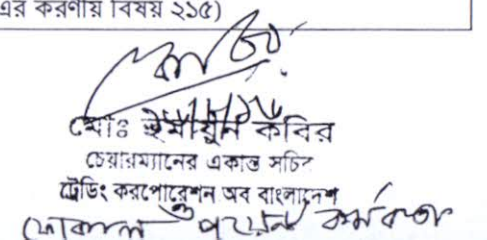 এর করণীয় বিষয় ২১৫)
মোঃ হুমায়ুন কবির
চেয়ারম্যানের একান্ত সচিব
ট্রেডিং করপোরেশন অব বাংলাদেশ
ও
ফোকাল পয়েন্ট কর্মকর্তা